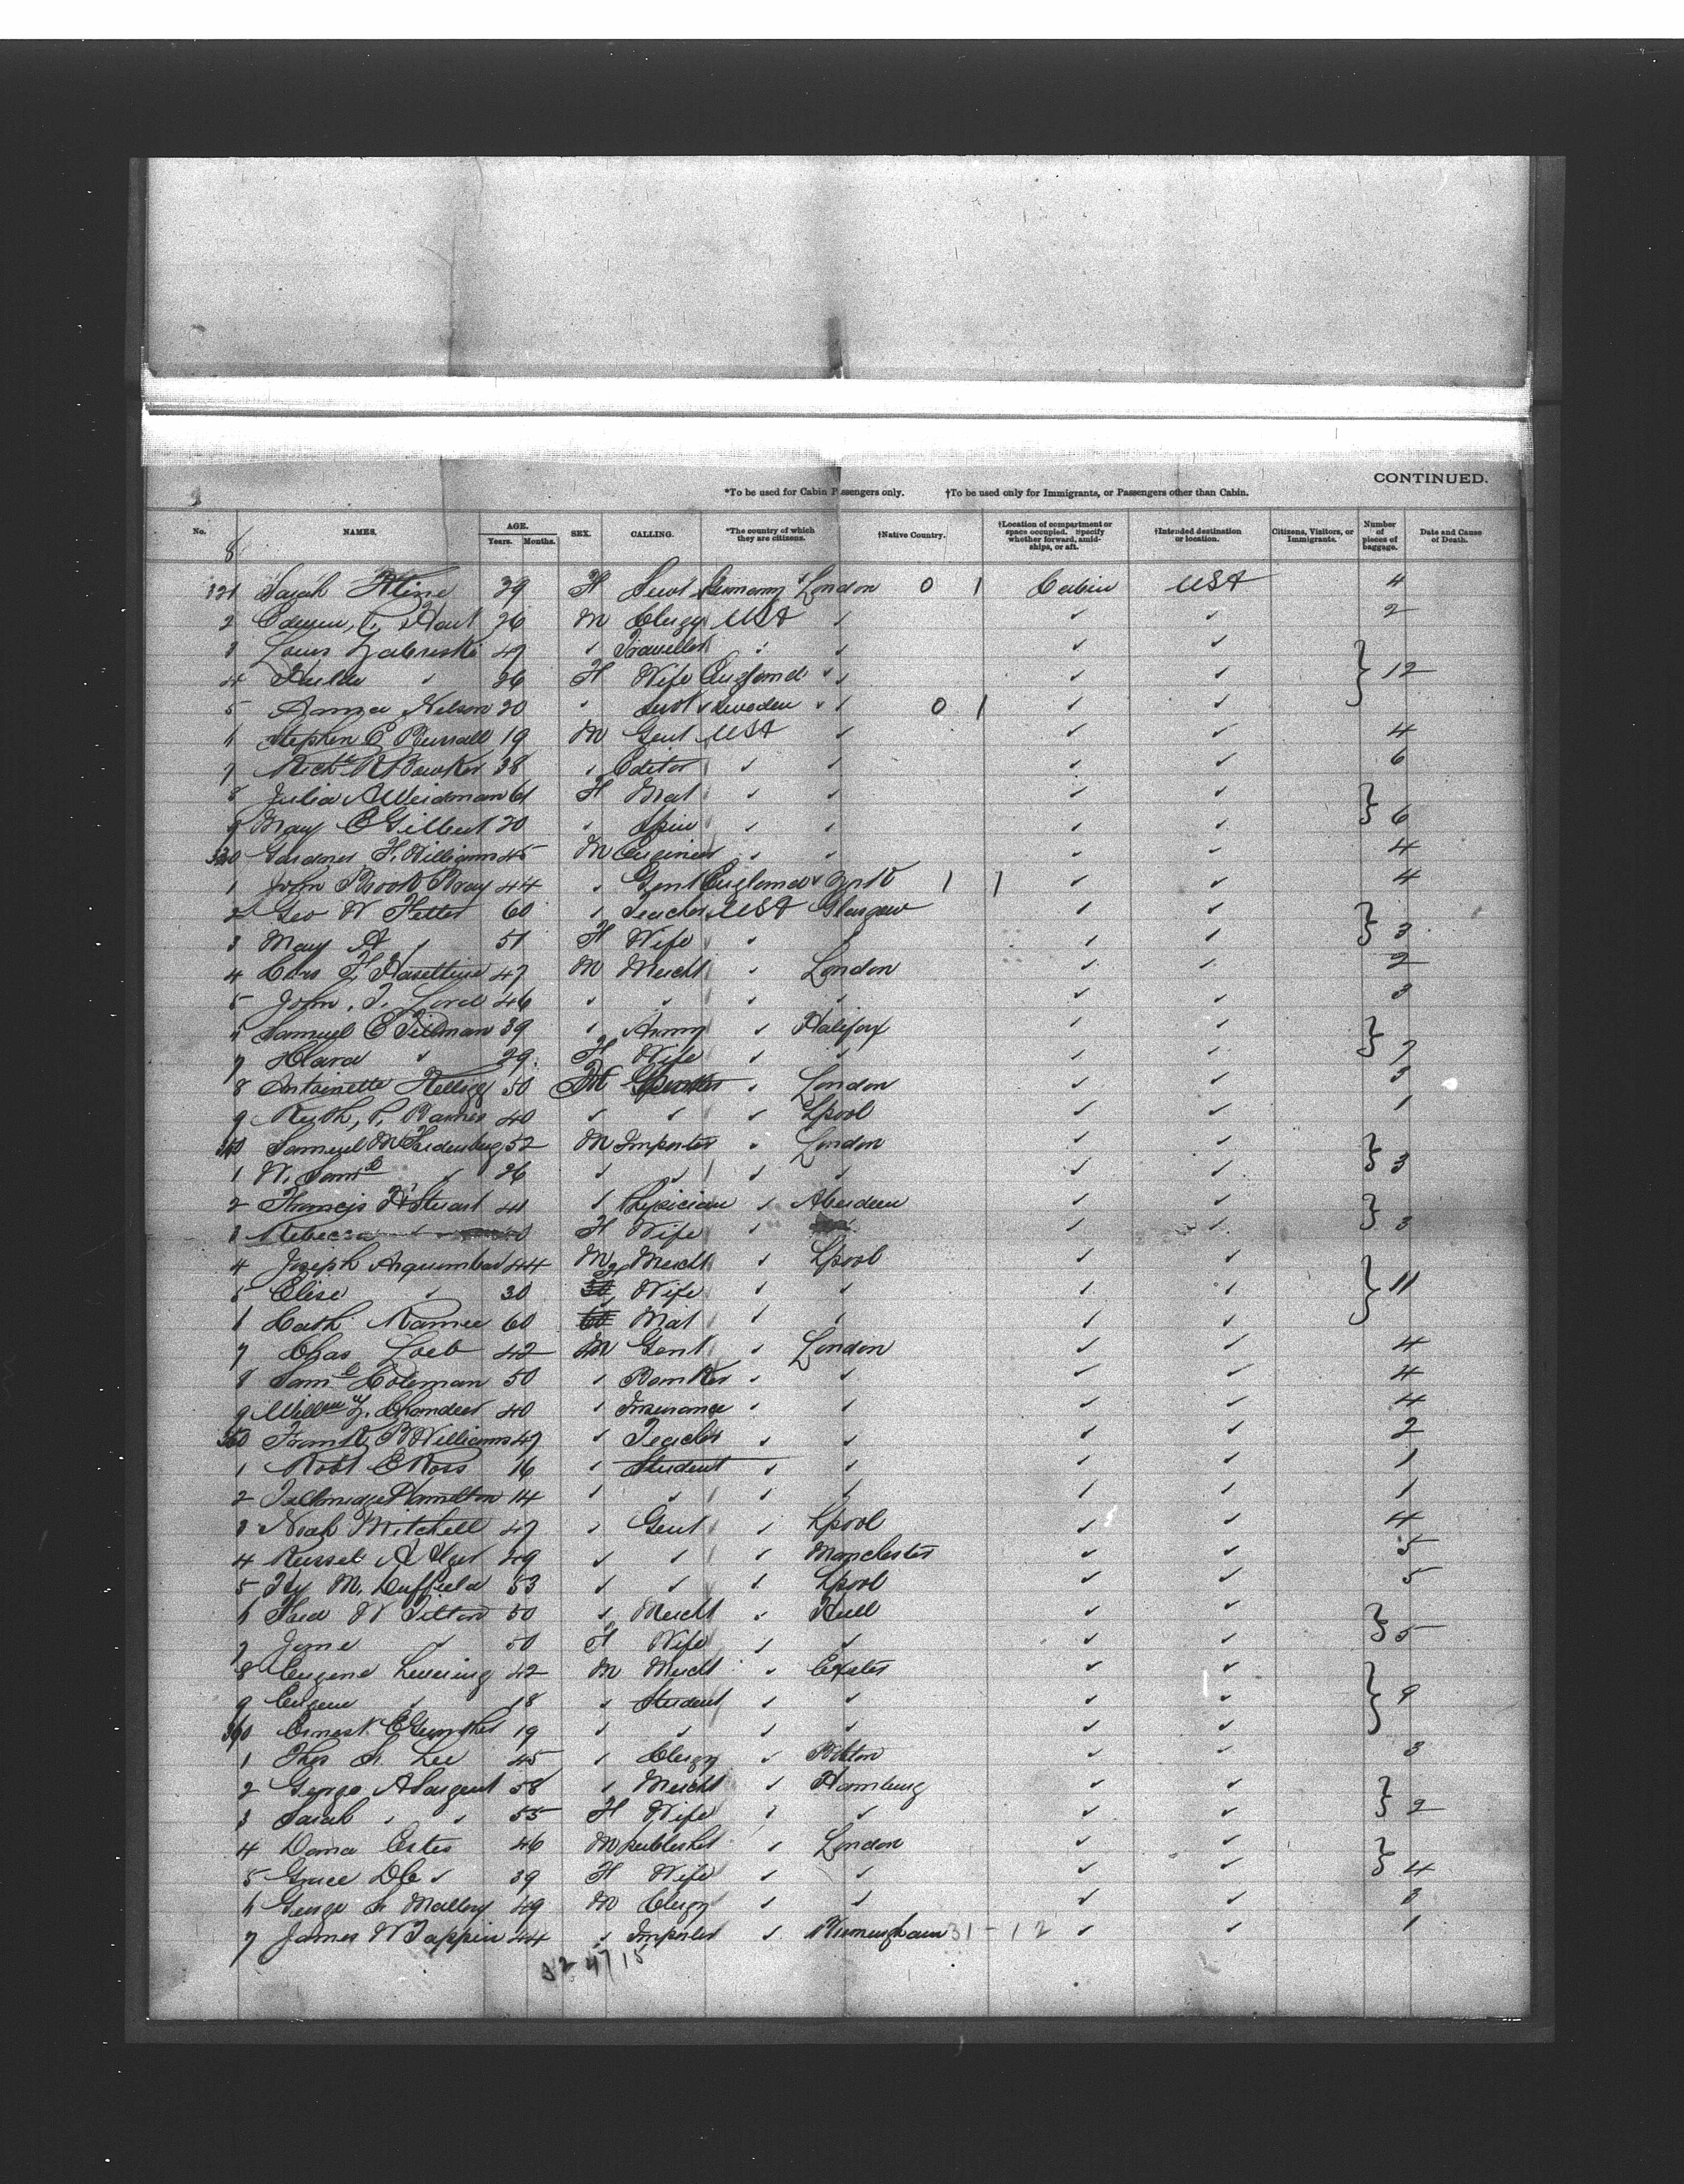 CONTINUED.
*To be used for Cabin Passengers only. †To be used only for Immigrants, or Passengers other than Cabin.
No. NAMES. AGE. Years. Months. SEX. CALLING. *The country of which they are citizens. †Native Country. †Location of compartment or space occupied. Specify whether forward, amidships, or aft. †Intended destination or location. Citizens, Visitors, or Immigrants. Number of pieces of baggage. Date and Cause of Death.
Sarah Kline 29 F Servt Germany London 0 1 Cabin USA 4
2 26 M Clergy USA ✓ ✓ ✓ 2
3 Louis Zabriskie 47 ✓ Traveller ✓ ✓ ✓ ✓
4 Hulda ✓ 26 F Wife England ✓ ✓ ✓ } 12
5 Anna Nelson 20 ✓ Servt Sweden ✓ 0 1 ✓ ✓
6 Stephen E Burrall 19 M Gent USA ✓ ✓ ✓ 4
7 Richd R Bowker 38 ✓ Editor ✓ ✓ ✓ ✓ 6
8 Julia A Weidman 61 F Mat ✓ ✓ ✓ ✓
9 May E Gilbert 20 ✓ Spin ✓ ✓ ✓ ✓ } 6
Gardner F. Williams 45 M Engineer ✓ ✓ ✓ ✓ 4
1 John Brook Bray 44 ✓ Gent England 1 1 ✓ ✓ 4
2 Geo W Fetter 60 ✓ Teacher USA Glasgow ✓ ✓
3 Mary A ✓ 51 F Wife ✓ ✓ ✓ ✓ } 3
4 Chas F. Haseltine 47 M Mercht ✓ London ✓ ✓ 2
5 John. T. Lord 46 ✓ ✓ ✓ ✓ ✓ ✓ 3
6 Samuel E Tillman 39 ✓ Army ✓ Halifax ✓ ✓
7 Clara ✓ 29 F Wife ✓ ✓ ✓ ✓ } 7
8 Antoinette Kellogg 50 ✓ London ✓ ✓ 3
9 Ruth, P. Barnes 40 ✓ ✓ ✓ Lpool ✓ ✓ 1
Samuel M 52 M Importer ✓ London ✓ ✓
1 W. Saml ✓ 26 ✓ ✓ ✓ ✓ ✓ ✓ } 3
2 Francis H Stuart 41 ✓ Physician ✓ Aberdeen ✓ ✓
3 Rebecca ✓ F Wife ✓ ✓ ✓ } 3
4 Joseph Arquimbau 44 M Mercht ✓ Lpool ✓ ✓
5 Elise ✓ 30 F Wife ✓ ✓ ✓ ✓ } 11
6 Cath 60 ✓ Mat ✓ ✓ ✓ ✓
7 Chas Loeb 42 M Gent ✓ London ✓ ✓ 4
8 Saml Coleman 50 ✓ Banker ✓ ✓ ✓ ✓ 4
9 40 ✓ Insurance ✓ ✓ ✓ ✓ 4
Frank B Williams 47 ✓ Teacher ✓ ✓ ✓ ✓ 2
1 Robt E Ross 16 ✓ Student ✓ ✓ ✓ ✓ 1
2 Hamilton 14 ✓ ✓ ✓ ✓ ✓ ✓ 1
3 Noah Mitchell 47 ✓ Gent ✓ Lpool ✓ ✓ 4
4 Russel A Alger 49 ✓ ✓ ✓ Manchester ✓ ✓ 5
5 Hy M. Duffield 53 ✓ ✓ ✓ Lpool ✓ ✓ 5
6 Fred W Tilton 50 ✓ Mercht ✓ Hull ✓ ✓
7 Jane ✓ 50 F Wife ✓ ✓ ✓ ✓ } 5
8 Eugene Levering 42 M Mercht ✓ Exeter ✓ ✓
9 Eugene ✓ 18 ✓ Student ✓ ✓ ✓ ✓ } 9
Ernest E Gunther 19 ✓ ✓ ✓ ✓ ✓ ✓
1 Thos S. Lee 45 ✓ Clergy ✓ Bolton ✓ ✓ 3
2 George A Sargent 58 ✓ Mercht ✓ Hamburg ✓ ✓
3 Sarah ✓ ✓ 55 F Wife ✓ ✓ ✓ ✓ } 2
4 Dana Estes 46 M publisher ✓ London ✓ ✓
5 Grace DC ✓ 39 F Wife ✓ ✓ ✓ ✓ } 4
6 George S. Mallory 49 M Clergy ✓ ✓ ✓ ✓ 3
7 James W Tappin 44 ✓ Importer ✓ Birmingham 31 - 12 ✓ ✓ 1
32 47 15